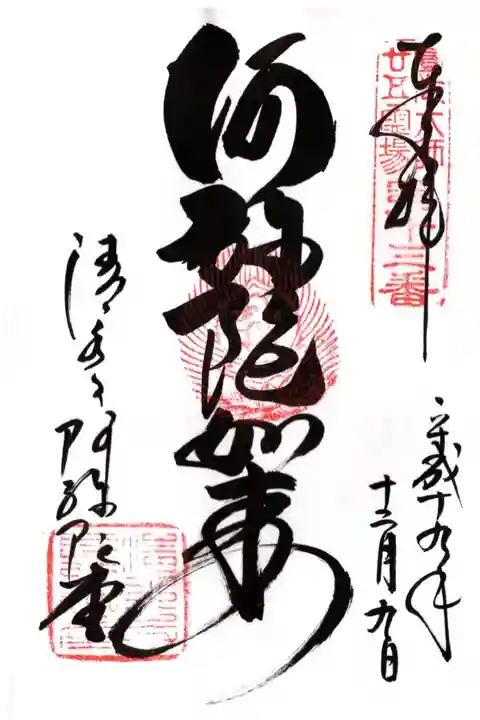 奉拝
圓光大師
廿五霊場
第十三番
平成十九年
十二月九日
阿弥陀如来
清水寺阿弥陀堂